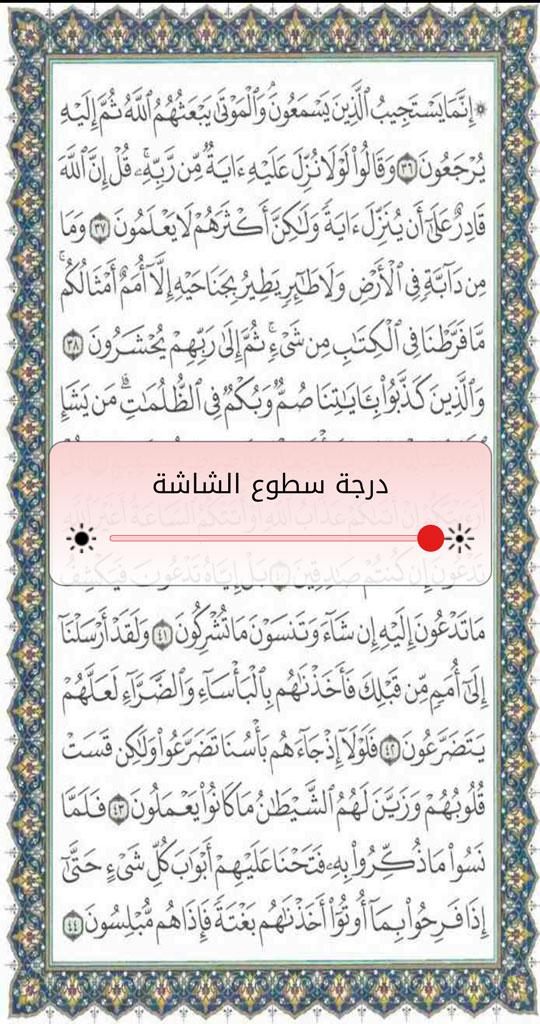 ۞ إِنَّمَا يَسْتَجِيبُ ٱلَّذِينَ يَسْمَعُونَۘ وَٱلْمَوْتَىٰ يَبْعَثُهُمُ ٱللَّهُ ثُمَّ إِلَيْهِ
يُرْجَعُونَ ٣٦ وَقَالُوا۟ لَوْلَا نُزِّلَ عَلَيْهِ ءَايَةٌ مِّن رَّبِّهِۦۚ قُلْ إِنَّ ٱللَّهَ
قَادِرٌ عَلَىٰٓ أَن يُنَزِّلَ ءَايَةً وَلَـٰكِنَّ أَكْثَرَهُمْ لَا يَعْلَمُونَ ٣٧ وَمَا
مِن دَآبَّةٍ فِى ٱلْأَرْضِ وَلَا طَـٰٓئِرٍ يَطِيرُ بِجَنَاحَيْهِ إِلَّآ أُمَمٌ أَمْثَالُكُمۚ
مَّا فَرَّطْنَا فِى ٱلْكِتَـٰبِ مِن شَىْءٍۚ ثُمَّ إِلَىٰ رَبِّهِمْ يُحْشَرُونَ ٣٨
وَٱلَّذِينَ كَذَّبُوا۟ بِـَٔايَـٰتِنَا صُمٌّ وَبُكْمٌ فِى ٱلظُّلُمَـٰتِۗ مَن يَشَإِ
درجة سطوع الشاشة
تَدْعُونَ إِن كُنتُمْ صَـٰدِقِينَ ٤٠ بَلْ إِيَّاهُ تَدْعُونَ فَيَكْشِفُ
مَا تَدْعُونَ إِلَيْهِ إِن شَآءَ وَتَنسَوْنَ مَا تُشْرِكُونَ ٤١ وَلَقَدْ أَرْسَلْنَآ
إِلَىٰٓ أُمَمٍ مِّن قَبْلِكَ فَأَخَذْنَـٰهُم بِٱلْبَأْسَآءِ وَٱلضَّرَّآءِ لَعَلَّهُمْ
يَتَضَرَّعُونَ ٤٢ فَلَوْلَآ إِذْ جَآءَهُم بَأْسُنَا تَضَرَّعُوا۟ وَلَـٰكِن قَسَتْ
قُلُوبُهُمْ وَزَيَّنَ لَهُمُ ٱلشَّيْطَـٰنُ مَا كَانُوا۟ يَعْمَلُونَ ٤٣ فَلَمَّا
نَسُوا۟ مَا ذُكِّرُوا۟ بِهِۦ فَتَحْنَا عَلَيْهِمْ أَبْوَٰبَ كُلِّ شَىْءٍ حَتَّىٰٓ
إِذَا فَرِحُوا۟ بِمَآ أُوتُوٓا۟ أَخَذْنَـٰهُم بَغْتَةً فَإِذَا هُم مُّبْلِسُونَ ٤٤